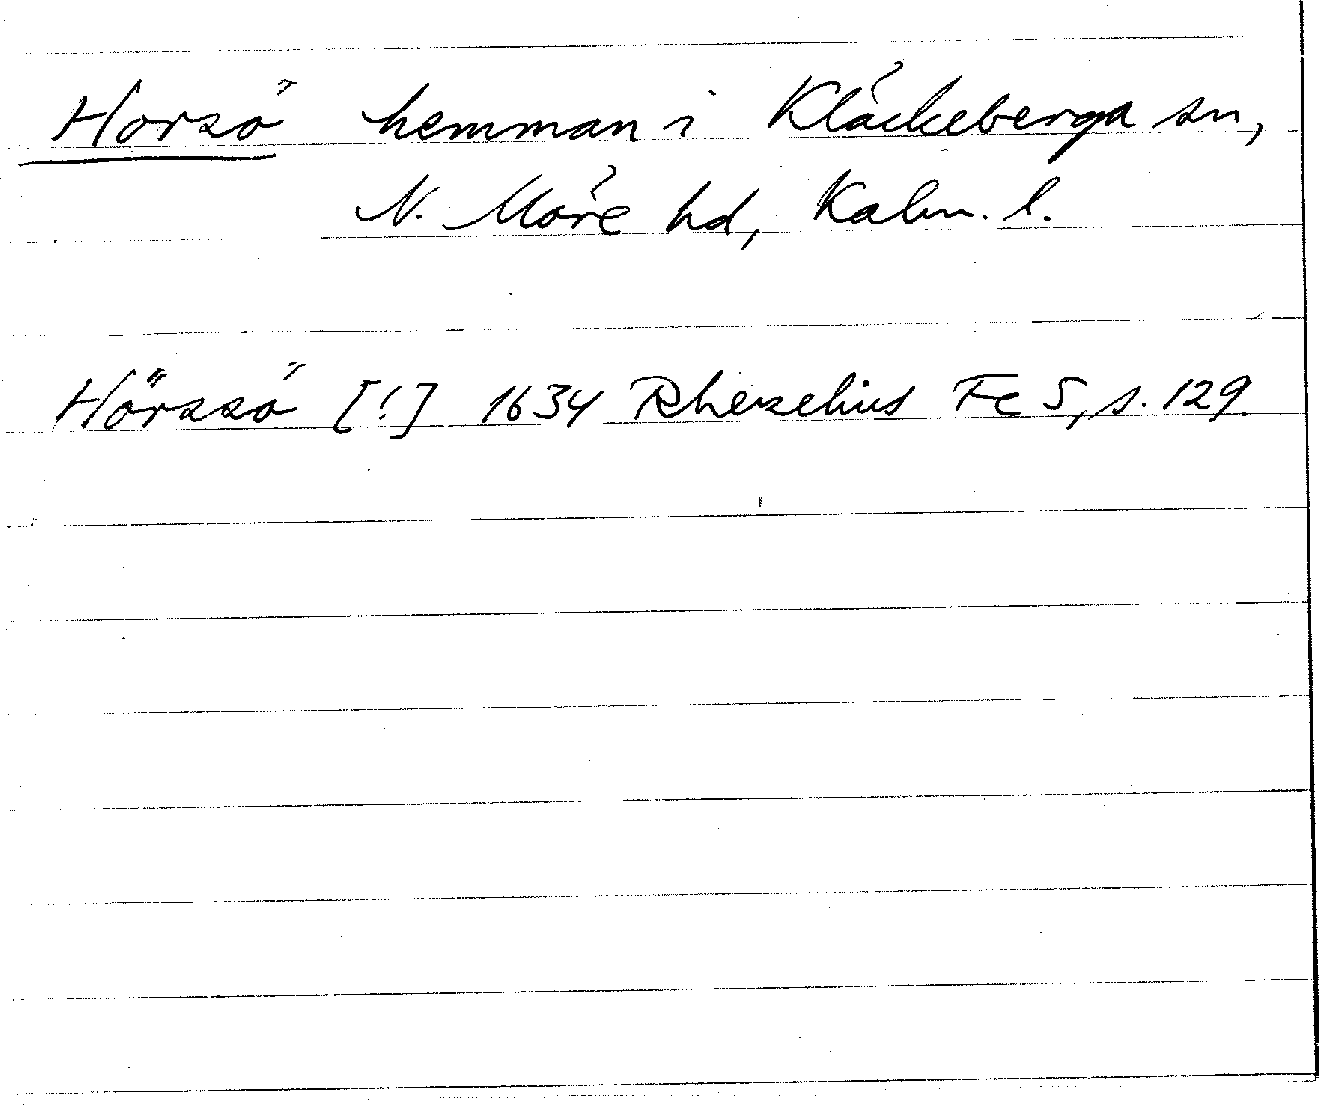 Horsö hemman i Kläckeberga sn,
N. Möre hd, Kalm. l.
Hörssö [!] 1634 Rhezelius Fc 5, s. 129.